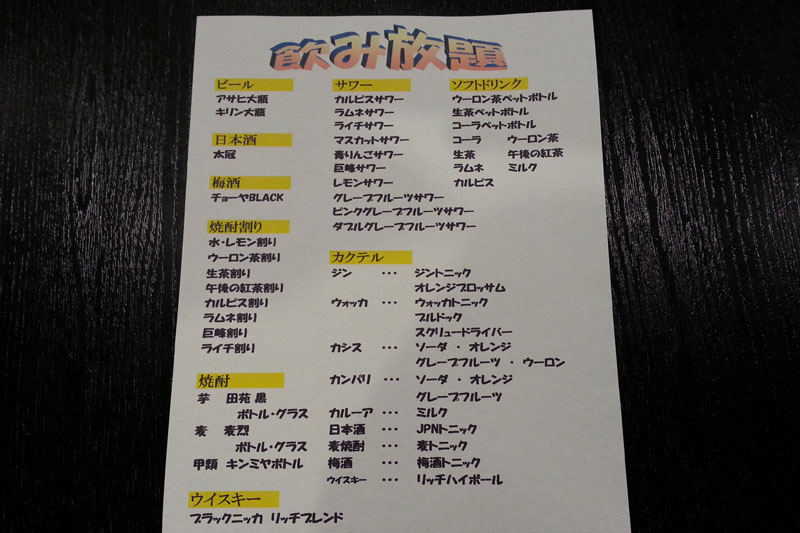 飲み放題
ビール
アサヒ大瓶
キリン大瓶
日本酒
太冠
梅酒
チョーヤBLACK
焼酎割り
水・レモン割り
ウーロン茶割り
生茶割り
午後の紅茶割り
カルピス割り
ラムネ割り
巨峰割り
ライチ割り
焼酎
芋 田苑 黒
ボトル・グラス
麦 麦烈
ボトル・グラス
甲類 キンミヤボトル
ウイスキー
ブラックニッカ リッチブレンド
サワー
カルピスサワー
ラムネサワー
ライチサワー
マスカットサワー
青りんごサワー
巨峰サワー
レモンサワー
グレープフルーツサワー
ピンクグレープフルーツサワー
ダブルグレープフルーツサワー
カクテル
ジン ・・・ ジントニック
オレンジブロッサム
ウォッカ ・・・ ウォッカトニック
ブルドック
スクリュードライバー
カシス ・・・ ソーダ ・ オレンジ
グレープフルーツ ・ ウーロン
カンパリ ・・・ ソーダ ・ オレンジ
グレープフルーツ
カルーア ・・・ ミルク
日本酒 ・・・ JPNトニック
麦焼酎 ・・・ 麦トニック
梅酒 ・・・ 梅酒トニック
ウイスキー ・・・ リッチハイボール
ソフトドリンク
ウーロン茶ペットボトル
生茶ペットボトル
コーラペットボトル
コーラ ウーロン茶
生茶 午後の紅茶
ラムネ ミルク
カルピス